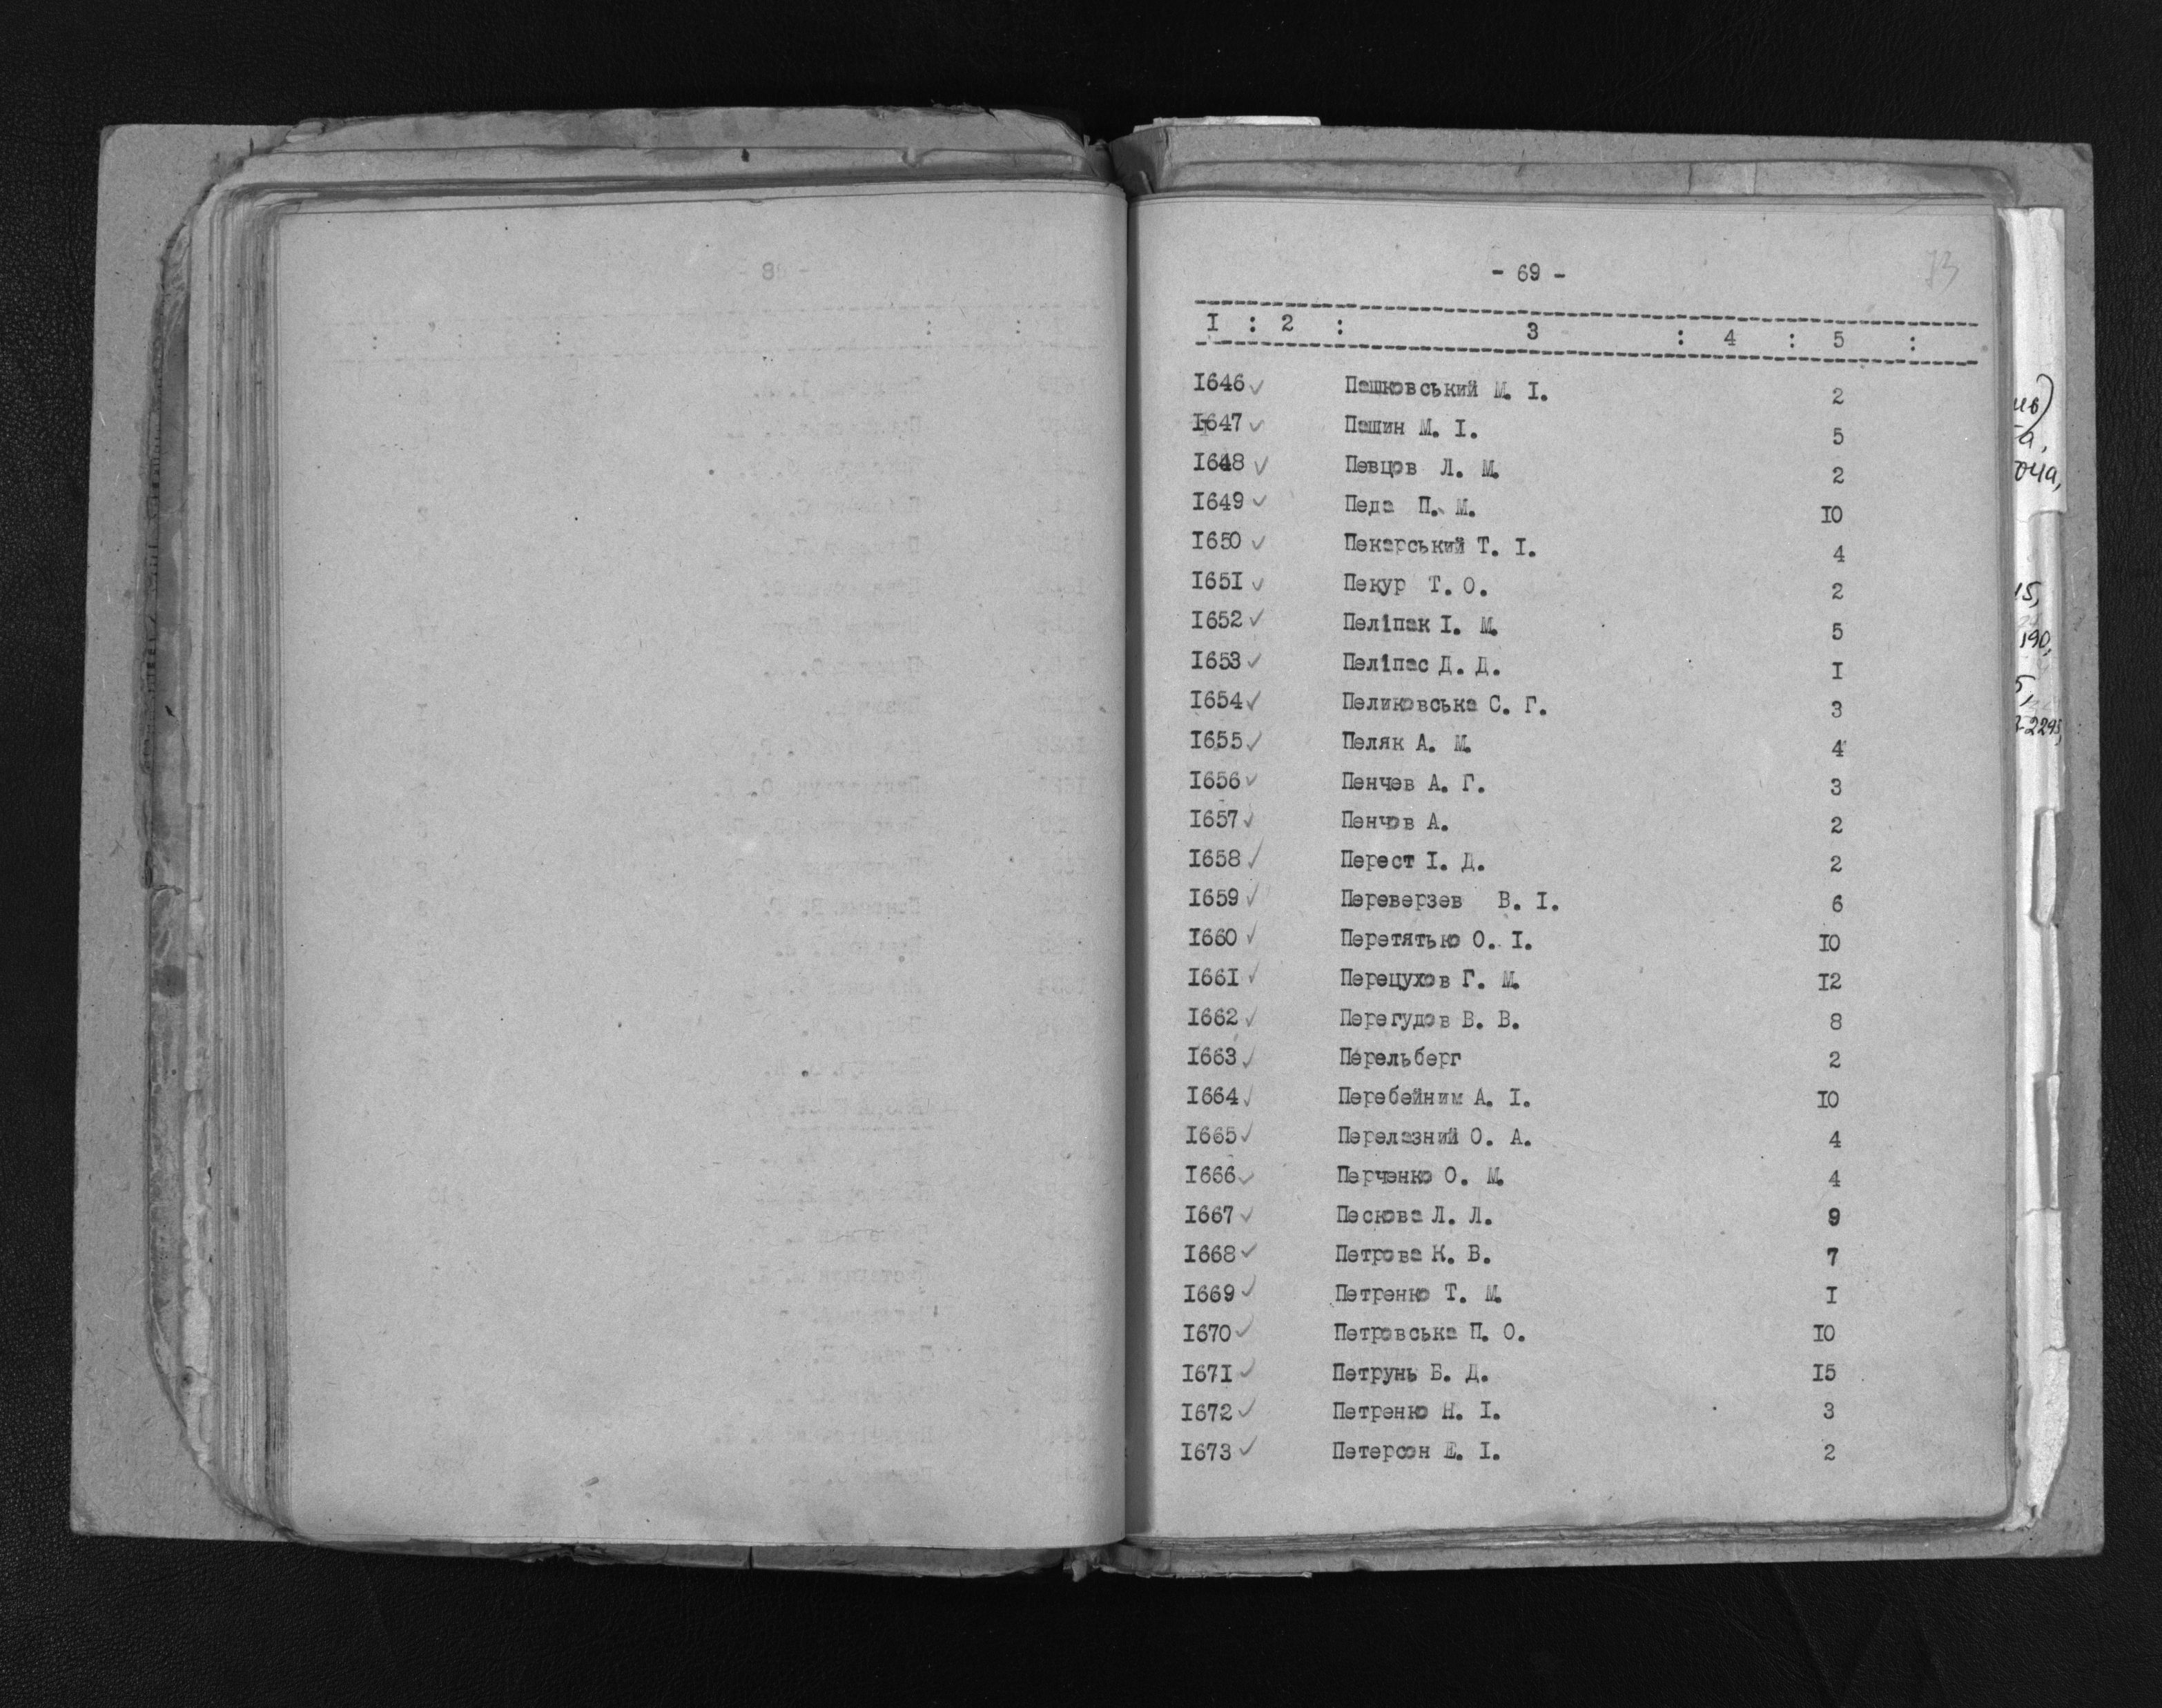 - 69 -
73
I : 2 : 3 : 4 : 5 :
I646 ✓ Пашковський М. І. 2
I647 ✓ Пашин М. І. 5
I648 ✓ Певцов Л. М. 2
I649 ✓ Педа П. М. IO
I650 ✓ Пекарський Т. І. 4
I65I ✓ Пекур Т. О. 2
I652 ✓ Пеліпак І. М. 5
I653 ✓ Пеліпас Д. Д. I
I654 ✓ Пеликовська С. Г. 3
I655 ✓ Пеляк А. М. 4
I656 ✓ Пенчев А. Г. 3
I657 ✓ Пенчов А. 2
I658 ✓ Перест І. Д. 2
I659 ✓ Переверзев В. І. 6
I660 ✓ Перетятько О. І. IO
I66I ✓ Перецухов Г. М. I2
I662 ✓ Перегудов В. В. 8
I663 ✓ Перельберг 2
I664 ✓ Перебейним А. І. IO
I665 ✓ Перелазний О. А. 4
I666 ✓ Перченко О. М. 4
I667 ✓ Пескова Л. Л. 9
I668 ✓ Петрова К. В. 7
I669 ✓ Петренко Т. М. I
I670 ✓ Петровська П. О. IO
I67I ✓ Петрунь Б. Д. I5
I672 ✓ Петренко Н. І. 3
I673 ✓ Петерсон Е. І. 2